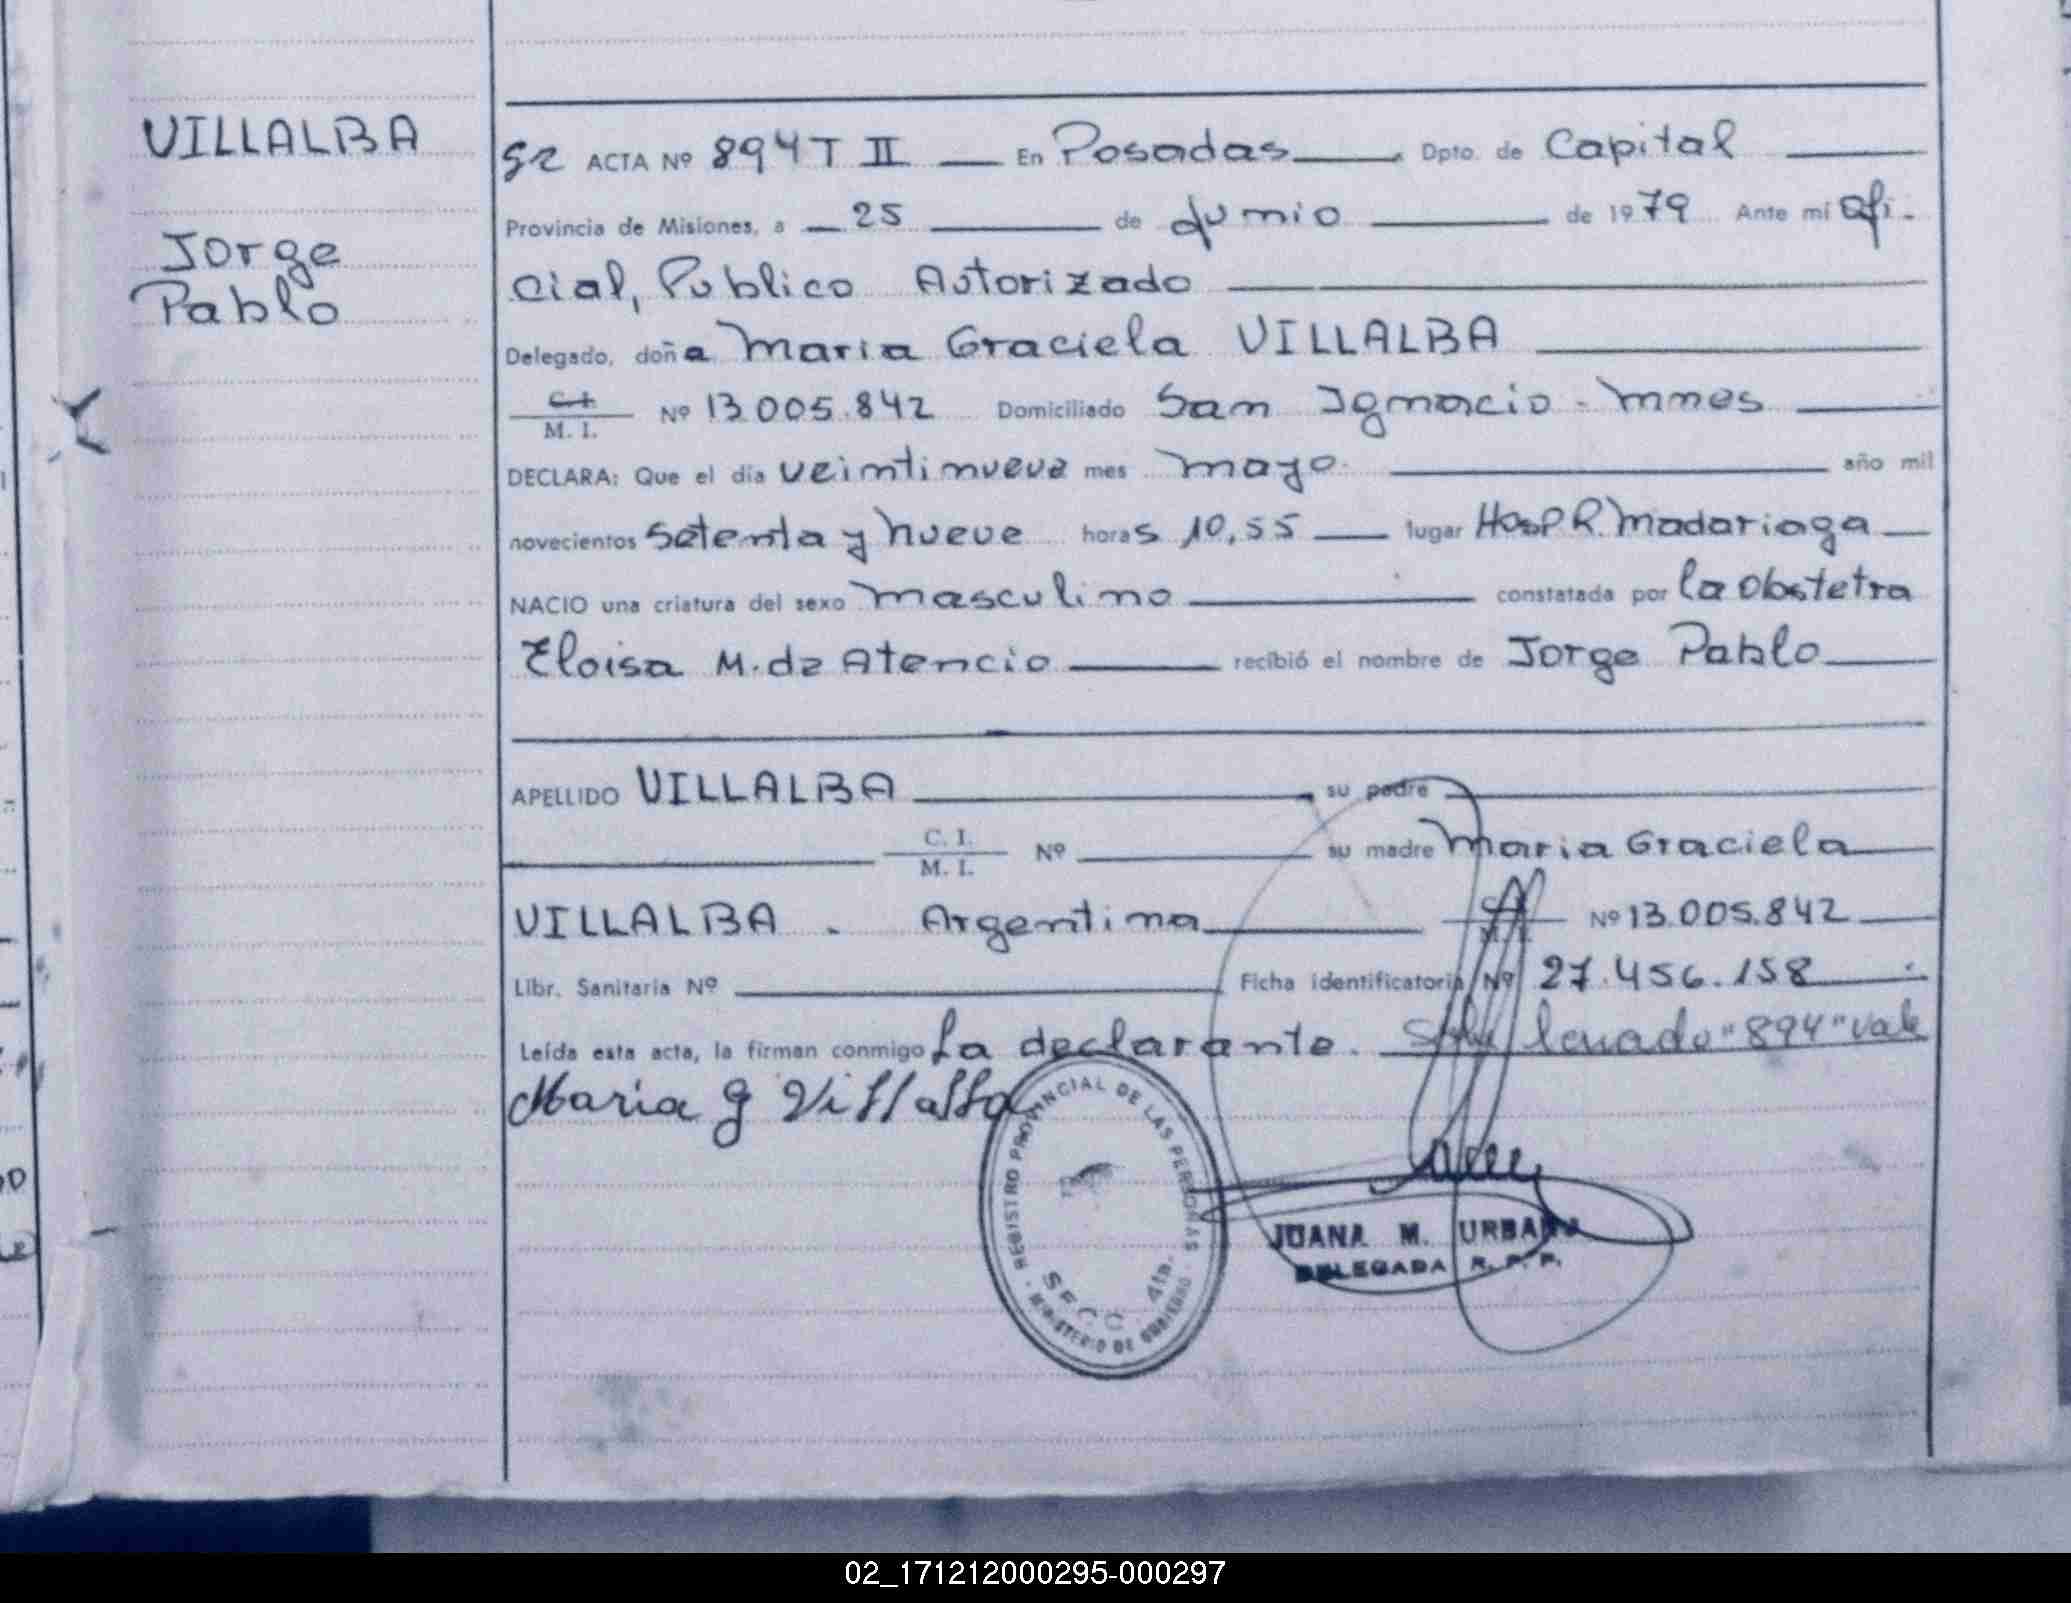 VILLALBA
Jorge
Pablo
ACTA Nº 894 T II En Posadas Dpto. de Capital
Provincia de Misiones, a 25 de Junio de 1979 Ante mi Ofi-
cial, Publico Autorizado
Delegado, doña Maria Graciela VILLALBA
C.I. M. I. Nº 13.005.842 Domiciliado San Ignacio - Mnes
DECLARA: Que el día veintinueve mes mayo año mil
novecientos setenta y nueve horas 10,55 lugar Hosp R. Madariaga
NACIO una criatura del sexo masculino constatada por la Obstetra
Eloisa M. de Atencio recibió el nombre de Jorge Pablo
APELLIDO VILLALBA su padre
C. I. M. I. Nº su madre Maria Graciela
VILLALBA . Argentina Nº 13.005.842
Libr. Sanitaria Nº Ficha identificatoria Nº 27.456.158
Leída esta acta, la firman conmigo La declarante. "894" vale
Maria G Villalba
REGISTRO PROVINCIAL DE LAS PERSONAS
SECC. 4ta.
MINISTERIO DE GOBIERNO
JUANA M. URBANA
DELEGADA R. P. P.
02_171212000295-000297